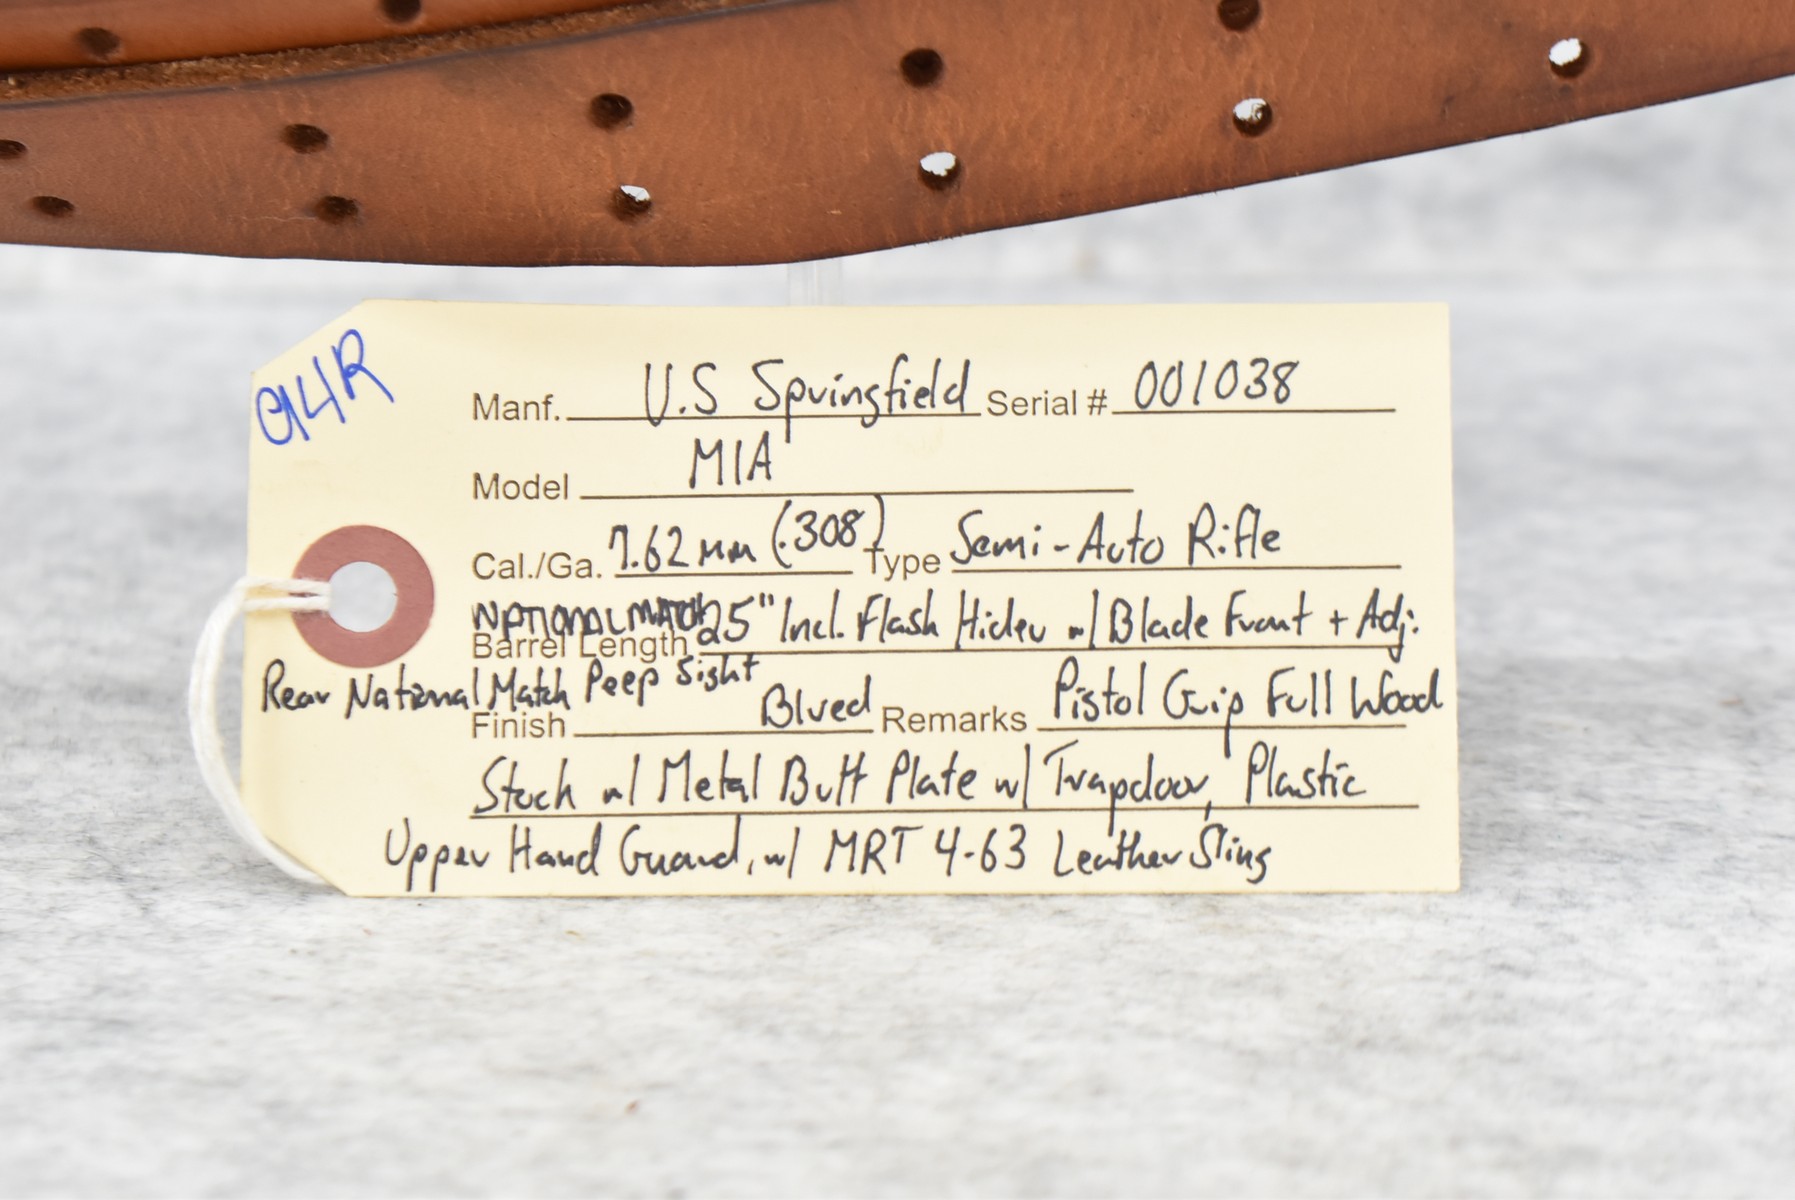 914R
Manf. U.S Springfield Serial # 001038
Model M1A
Cal./Ga. 7.62mm (.308) Type Semi-Auto Rifle
NATIONAL MATCH
Barrel Length 25" Incl. Flash Hider w/ Blade Front + Adj.
Rear National Match Peep Sight
Finish Blued Remarks Pistol Grip Full Wood
Stock w/ Metal Butt Plate w/ Trapdoor, Plastic
Upper Hand Guard, w/ MRT 4-63 Leather Sling